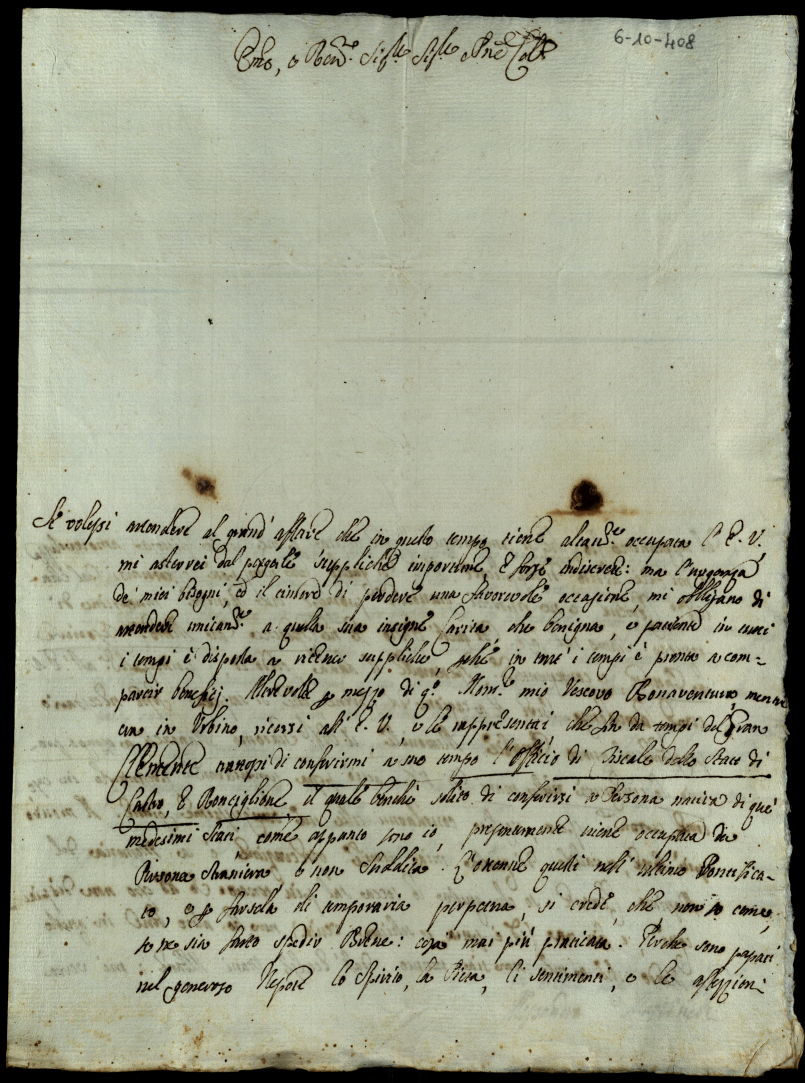 6-10-408
Emo, e Rev.mo Sig.re Sig.re Pne Col.mo
Se volessi attendere al grand' affare che in questo tempo tiene altam.te occupata l' E. V.,
mi asterrei dal porgerle suppliche importune, e forse indiscrete: ma l'urgenza
de' miei bisogni, ed il timore di perdere una favorevole occasione, mi obbligano di
attendere unicam.te a quella sua insigne Carità, che benigna, e paziente in tutti
i tempi è disposta a ricever suppliche, perchè in tutt' i tempi è pronta a com-
partir beneficj. Altre volte p mezzo di q.o Mons.re mio Vescovo Bonaventura, mentre
era in Urbino, ricorsi all' E. V., e le rappresentai, che fin da tempi del Gran
Clemente di conferirmi a suo tempo l' Officio di Fiscale dello Stato di
Castro, e Ronciglione il quale benchè solito di conferirsi a Persona nativa di que'
medesimi Stati, come appunto sono io, presentemente viene occupata da
Persona straniera, e non suddita. L' ottenne quelli nell' ultimo Pontifica-
to, e p farsela di temporaria perpetua, si crede, che non so come,
se ne sia fatto spedir Breve: cosa mai più praticata. Perche sono passati
nel generoso Nepote lo Spirito, la Pietà, li sentimenti, e le affezzioni